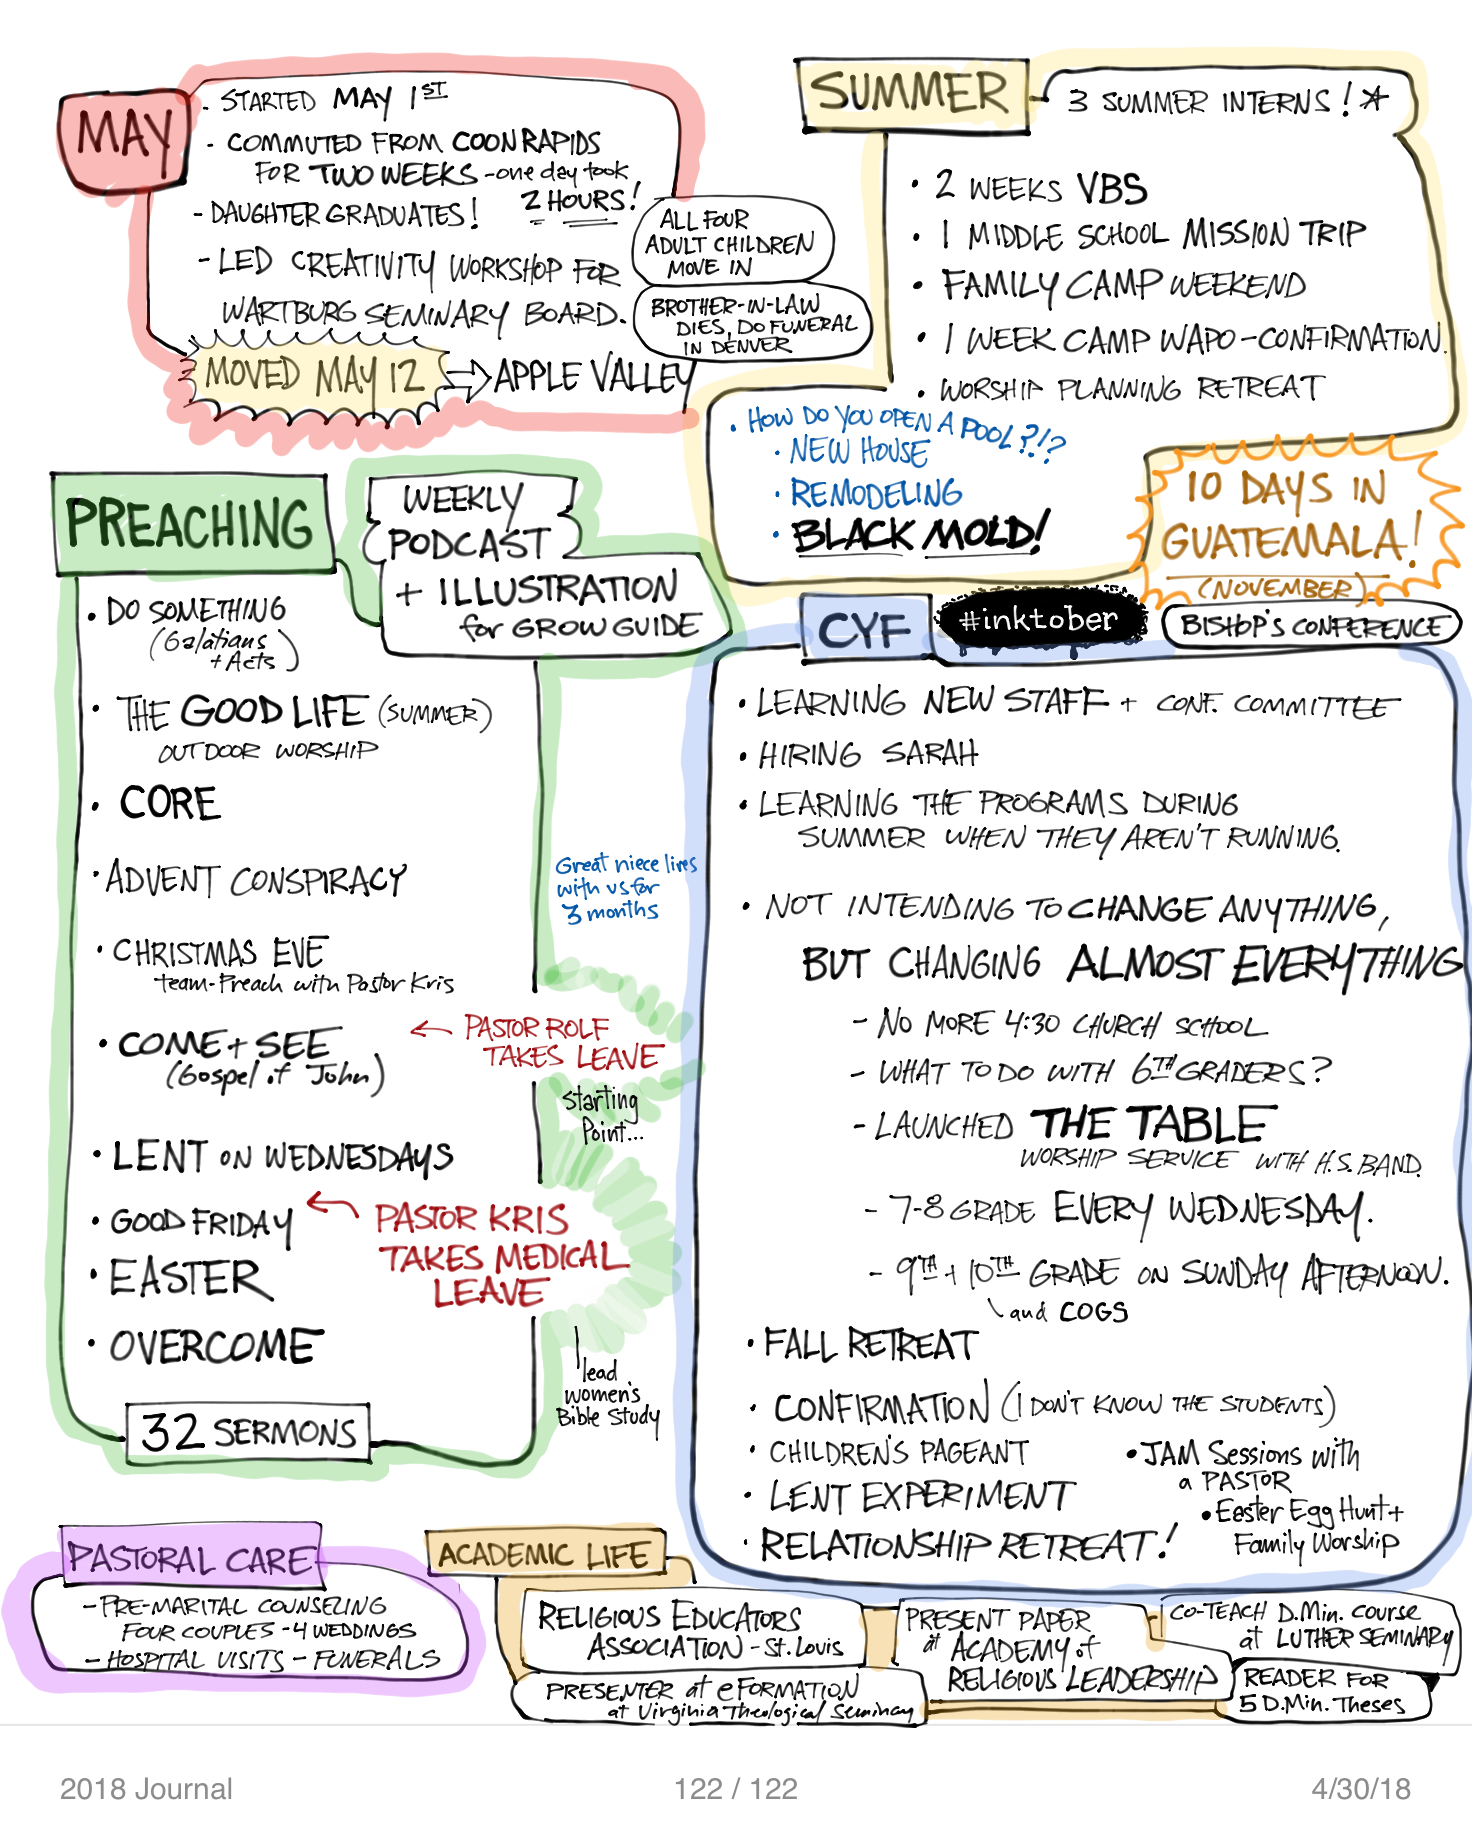 MAY
- STARTED MAY 1ST
- COMMUTED FROM COON RAPIDS
FOR TWO WEEKS - one day took
2 HOURS!
- DAUGHTER GRADUATES!
- LED CREATIVITY WORKSHOP FOR
WARTBURG SEMINARY BOARD.
MOVED MAY 12 ⇒ APPLE VALLEY
ALL FOUR
ADULT CHILDREN
MOVE IN
BROTHER-IN-LAW
DIES, DO FUNERAL
IN DENVER
SUMMER
3 SUMMER INTERNS! *
• 2 WEEKS VBS
• 1 MIDDLE SCHOOL MISSION TRIP
• FAMILY CAMP WEEKEND
• 1 WEEK CAMP WAPO - CONFIRMATION.
• WORSHIP PLANNING RETREAT
• HOW DO YOU OPEN A POOL?!?
• NEW HOUSE
• REMODELING
• BLACK MOLD!
10 DAYS IN
GUATEMALA!
(NOVEMBER)
BISHOP'S CONFERENCE
#inktober
PREACHING
WEEKLY
PODCAST
+ ILLUSTRATION
for GROW GUIDE
• DO SOMETHING
(Galatians
+ Acts)
• THE GOOD LIFE (SUMMER)
OUTDOOR WORSHIP
• CORE
• ADVENT CONSPIRACY
• CHRISTMAS EVE
team-Preach with Pastor Kris
• COME + SEE
(Gospel of John)
← PASTOR ROLF
TAKES LEAVE
• LENT ON WEDNESDAYS
• GOOD FRIDAY
← PASTOR KRIS
TAKES MEDICAL
LEAVE
• EASTER
• OVERCOME
32 SERMONS
Great niece lives
with us for
3 months
Starting
Point...
lead
women's
Bible Study
CYF
• LEARNING NEW STAFF + CONF. COMMITTEE
• HIRING SARAH
• LEARNING THE PROGRAMS DURING
SUMMER WHEN THEY AREN'T RUNNING.
• NOT INTENDING TO CHANGE ANYTHING,
BUT CHANGING ALMOST EVERYTHING
- NO MORE 4:30 CHURCH SCHOOL
- WHAT TO DO WITH 6TH GRADERS?
- LAUNCHED THE TABLE
WORSHIP SERVICE WITH H.S. BAND.
- 7-8 GRADE EVERY WEDNESDAY.
- 9TH + 10TH GRADE ON SUNDAY AFTERNOON.
and COGS
• FALL RETREAT
• CONFIRMATION (I DON'T KNOW THE STUDENTS)
• CHILDREN'S PAGEANT
• LENT EXPERIMENT
• RELATIONSHIP RETREAT!
• JAM Sessions with
a PASTOR
• Easter Egg Hunt +
Family Worship
PASTORAL CARE
- PRE-MARITAL COUNSELING
FOUR COUPLES - 4 WEDDINGS
- HOSPITAL VISITS - FUNERALS
ACADEMIC LIFE
RELIGIOUS EDUCATORS
ASSOCIATION - St. Louis
PRESENTER at eFORMATION
at Virginia Theological Seminary
PRESENT PAPER
at ACADEMY of
RELIGIOUS LEADERSHIP
CO-TEACH D.Min. course
at LUTHER SEMINARY
READER FOR
5 D.Min. Theses
2018 Journal
122 / 122
4/30/18